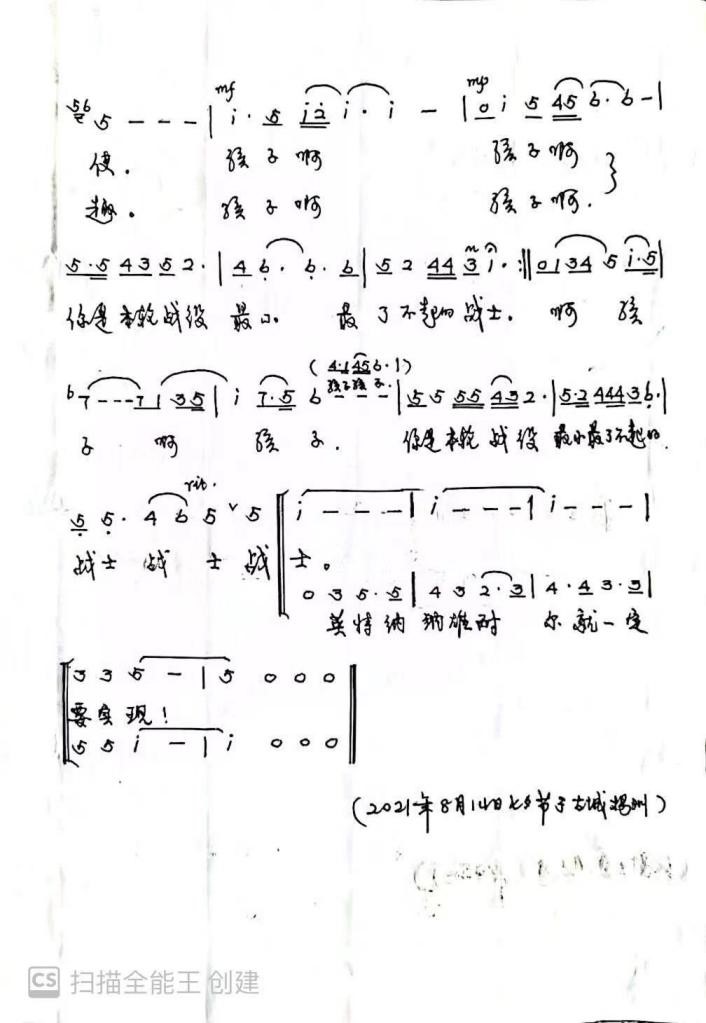 56 5 - - - | mf i · 5 i2 i · i - | mp 0 i 5 45 6 · 6 - |
使。 孩子啊 孩子啊
趣。 孩子啊 孩子啊.
5·5 43 5 2· | 4 6· 6· 6 | 5 2 44 3 i· :|| 01 34 5 i·5 |
你是本轮战役 最小。 最了不起的战士。 啊 孩
(4·1 45 6·1)
孩子孩子.
b7 - - - 71 35 | i 7·5 6 - - - | 55 55 43 2· | 5·2 444 3 6· |
子 啊 孩子. 你是本轮战役 最小最了不起的
rit.
5 5· 4 6 5 ˅ 5 | i - - - | i - - - | i - - - |
战士 战士战士。
0 3 5·5 | 4 3 2·3 | 4·4 3·3 |
英特纳纳雄耐 尔就一定
3 3 5 - | 5 0 0 0
要实现!
5 5 i - | i 0 0 0
(2021年8月14日七夕节于古城扬州)
CS 扫描全能王 创建